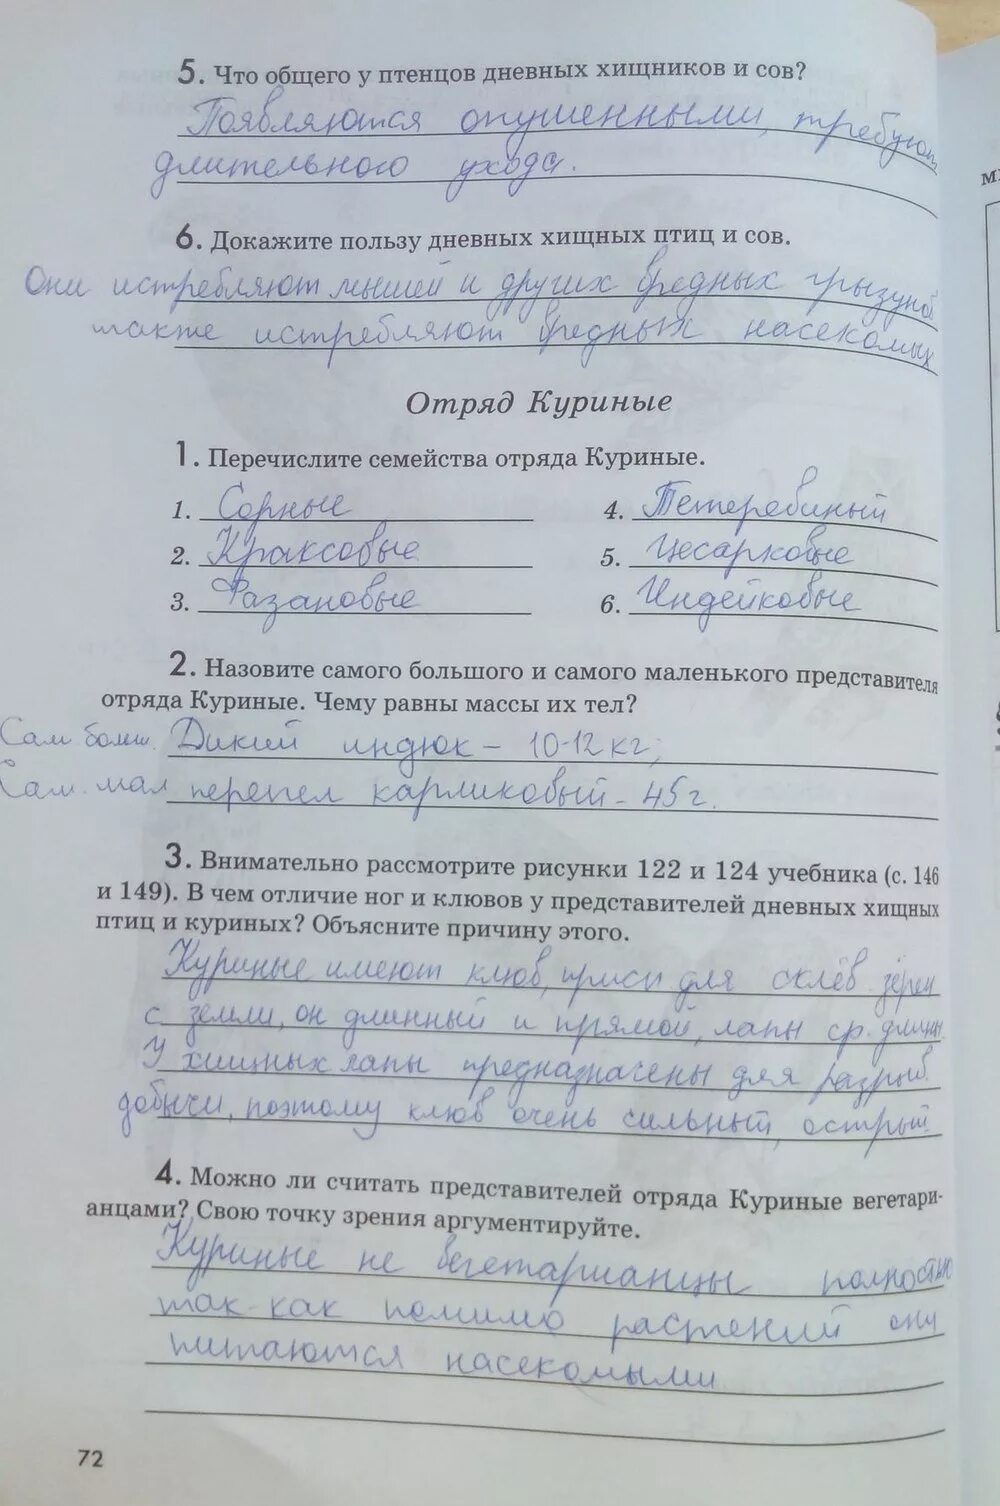 5. Что общего у птенцов дневных хищников и сов?
Появляются опушенными, требуют
длительного ухода.
6. Докажите пользу дневных хищных птиц и сов.
Они истребляют мышей и других вредных грызунов
также истребляют вредных насекомых
Отряд Куриные
1. Перечислите семейства отряда Куриные.
1. Сорные
4. Тетеревиный
2. Краксовые
5. Цесарковые
3. Фазановые
6. Индейковые
2. Назовите самого большого и самого маленького представителя
отряда Куриные. Чему равны массы их тел?
Сам. больш. Дикий индюк - 10-12 кг,
Сам. мал перепел карликовый - 45 г.
3. Внимательно рассмотрите рисунки 122 и 124 учебника (с. 146
и 149). В чем отличие ног и клювов у представителей дневных хищных
птиц и куриных? Объясните причину этого.
Куриные имеют клюв, присп для склёв. зёрен
с земли, он длинный и прямой, лапы ср. длины.
У хищных лапы предназначены для разрыв.
добычи, поэтому клюв очень сильный, острый
4. Можно ли считать представителей отряда Куриные вегетари-
анцами? Свою точку зрения аргументируйте.
Куриные не вегетарианцы полностью
так-как помимо растений они
питаются насекомыми
72